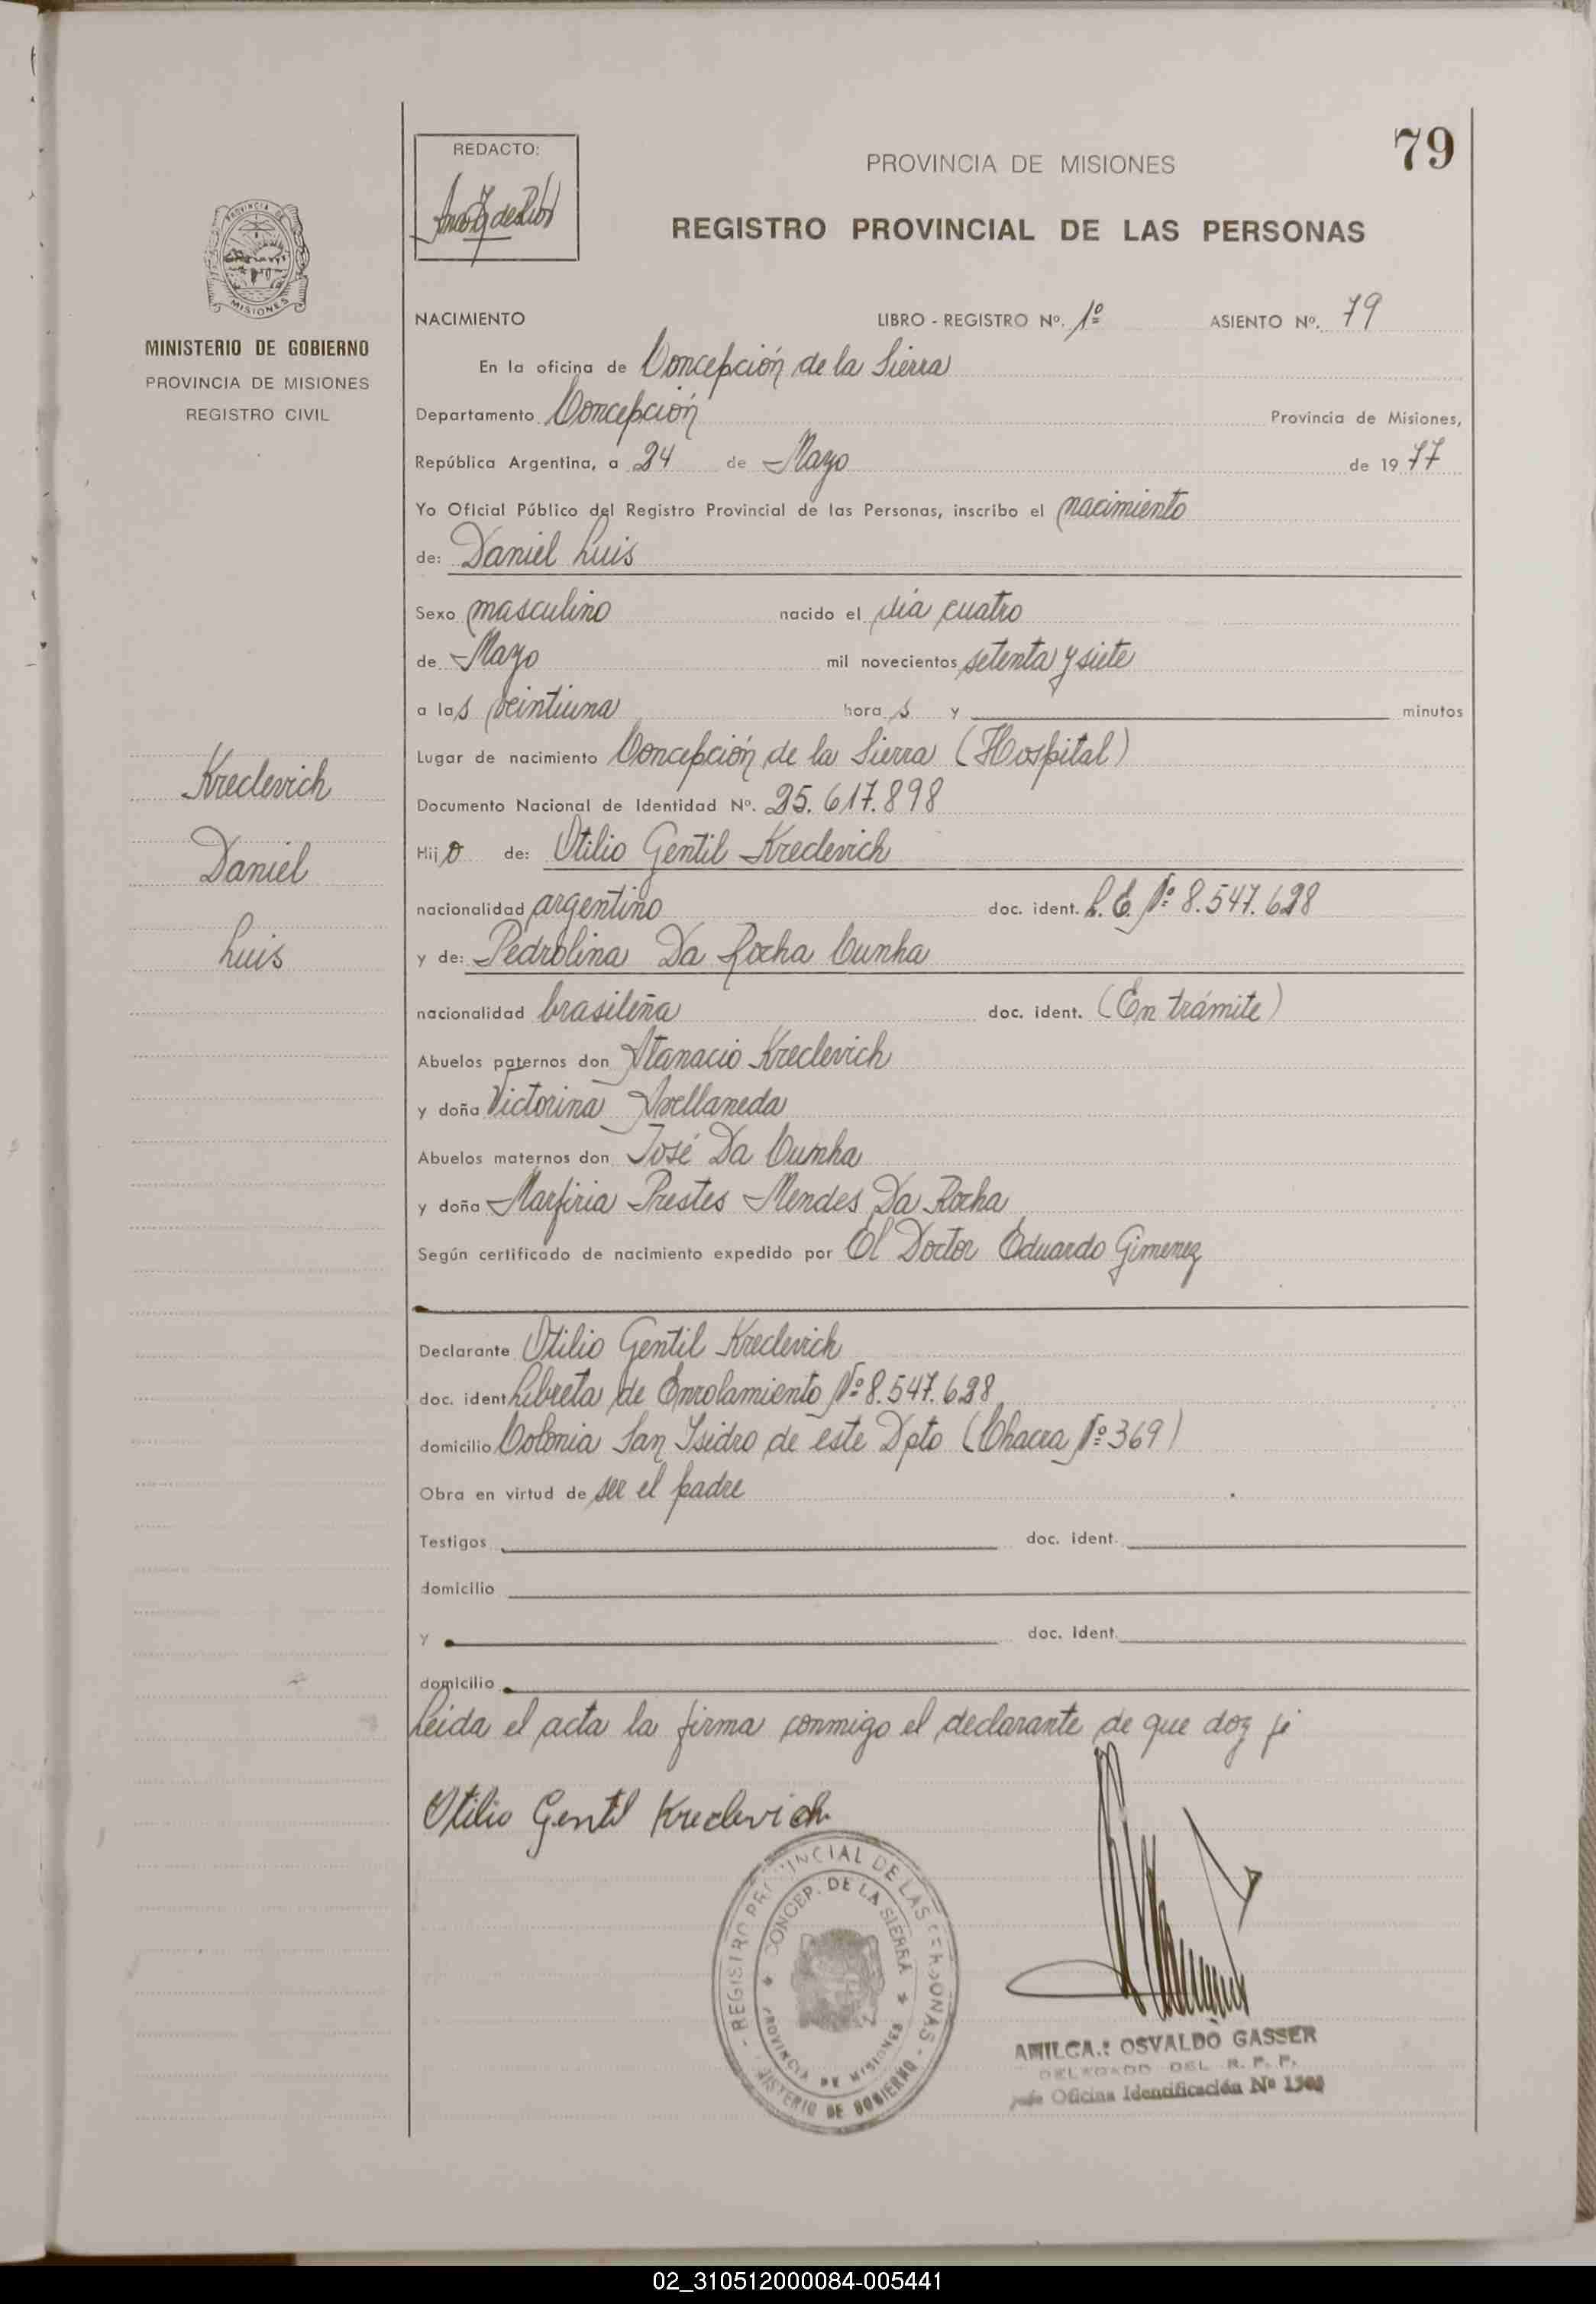 79
REDACTO:
PROVINCIA DE MISIONES
REGISTRO PROVINCIAL DE LAS PERSONAS
PROVINCIA DE
MISIONES
MINISTERIO DE GOBIERNO
PROVINCIA DE MISIONES
REGISTRO CIVIL
NACIMIENTO LIBRO - REGISTRO Nº. 1º ASIENTO Nº. 79
En la oficina de Concepción de la Sierra
Departamento Concepción Provincia de Misiones,
República Argentina, a 24 de Mayo de 1977
Yo Oficial Público del Registro Provincial de las Personas, inscribo el nacimiento
de: Daniel Luis
Sexo masculino nacido el día cuatro
de Mayo mil novecientos setenta y siete
a las veintiuna horas y minutos
Lugar de nacimiento Concepción de la Sierra (Hospital)
Kreclevich
Documento Nacional de Identidad Nº. 25.617.898
Daniel
Hijo de: Otilio Gentil Kreclevich
nacionalidad argentino doc. ident. L.E. Nº 8.547.628
Luis
y de: Pedrolina Da Rocha Cunha
nacionalidad brasileña doc. ident. (En trámite)
Abuelos paternos don Atanacio Kreclevich
y doña Victorina Avellaneda
Abuelos maternos don José Da Cunha
y doña Marfiria Prestes Mendes Da Rocha
Según certificado de nacimiento expedido por El Doctor Eduardo Gimenez
Declarante Otilio Gentil Kreclevich
doc. ident Libreta de Enrolamiento Nº 8.547.628
domicilio Colonia San Isidro de este Dpto (Chacra Nº 369)
Obra en virtud de ser el padre
Testigos doc. ident.
domicilio
y doc. ident.
domicilio
Leida el acta la firma conmigo el declarante de que doy fé
Otilio Gentil Kreclevich
- REGISTRO PROVINCIAL DE LAS PERSONAS -
MINISTERIO DE GOBIERNO
* CONCEP. DE LA SIERRA *
PROVINCIA DE MISIONES
AMILCAR OSVALDO GASSER
DELEGADO DEL R. P. P.
Jefe Oficina Identificación Nº
02_310512000084-005441